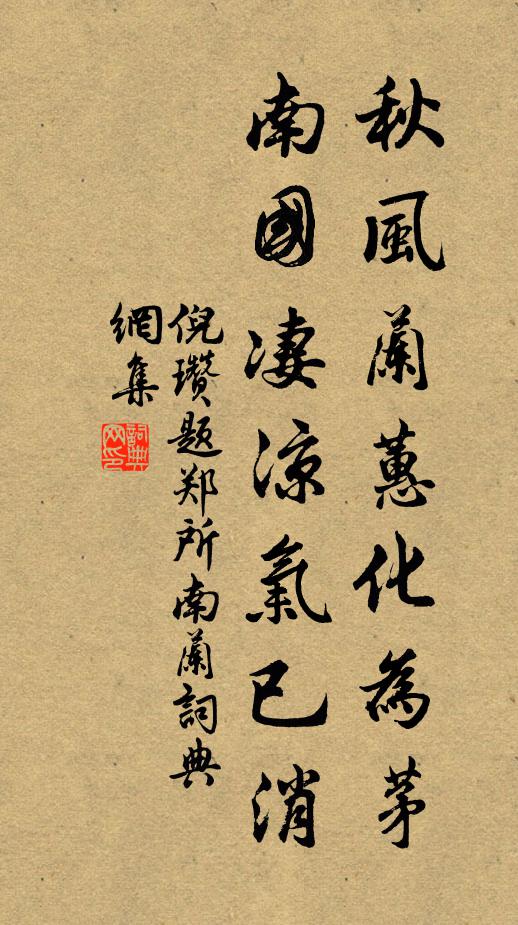 秋風蘭蕙化為茅
南國凄涼氣已消
倪瓚題郑所南蘭詞典
網集
詞典网印